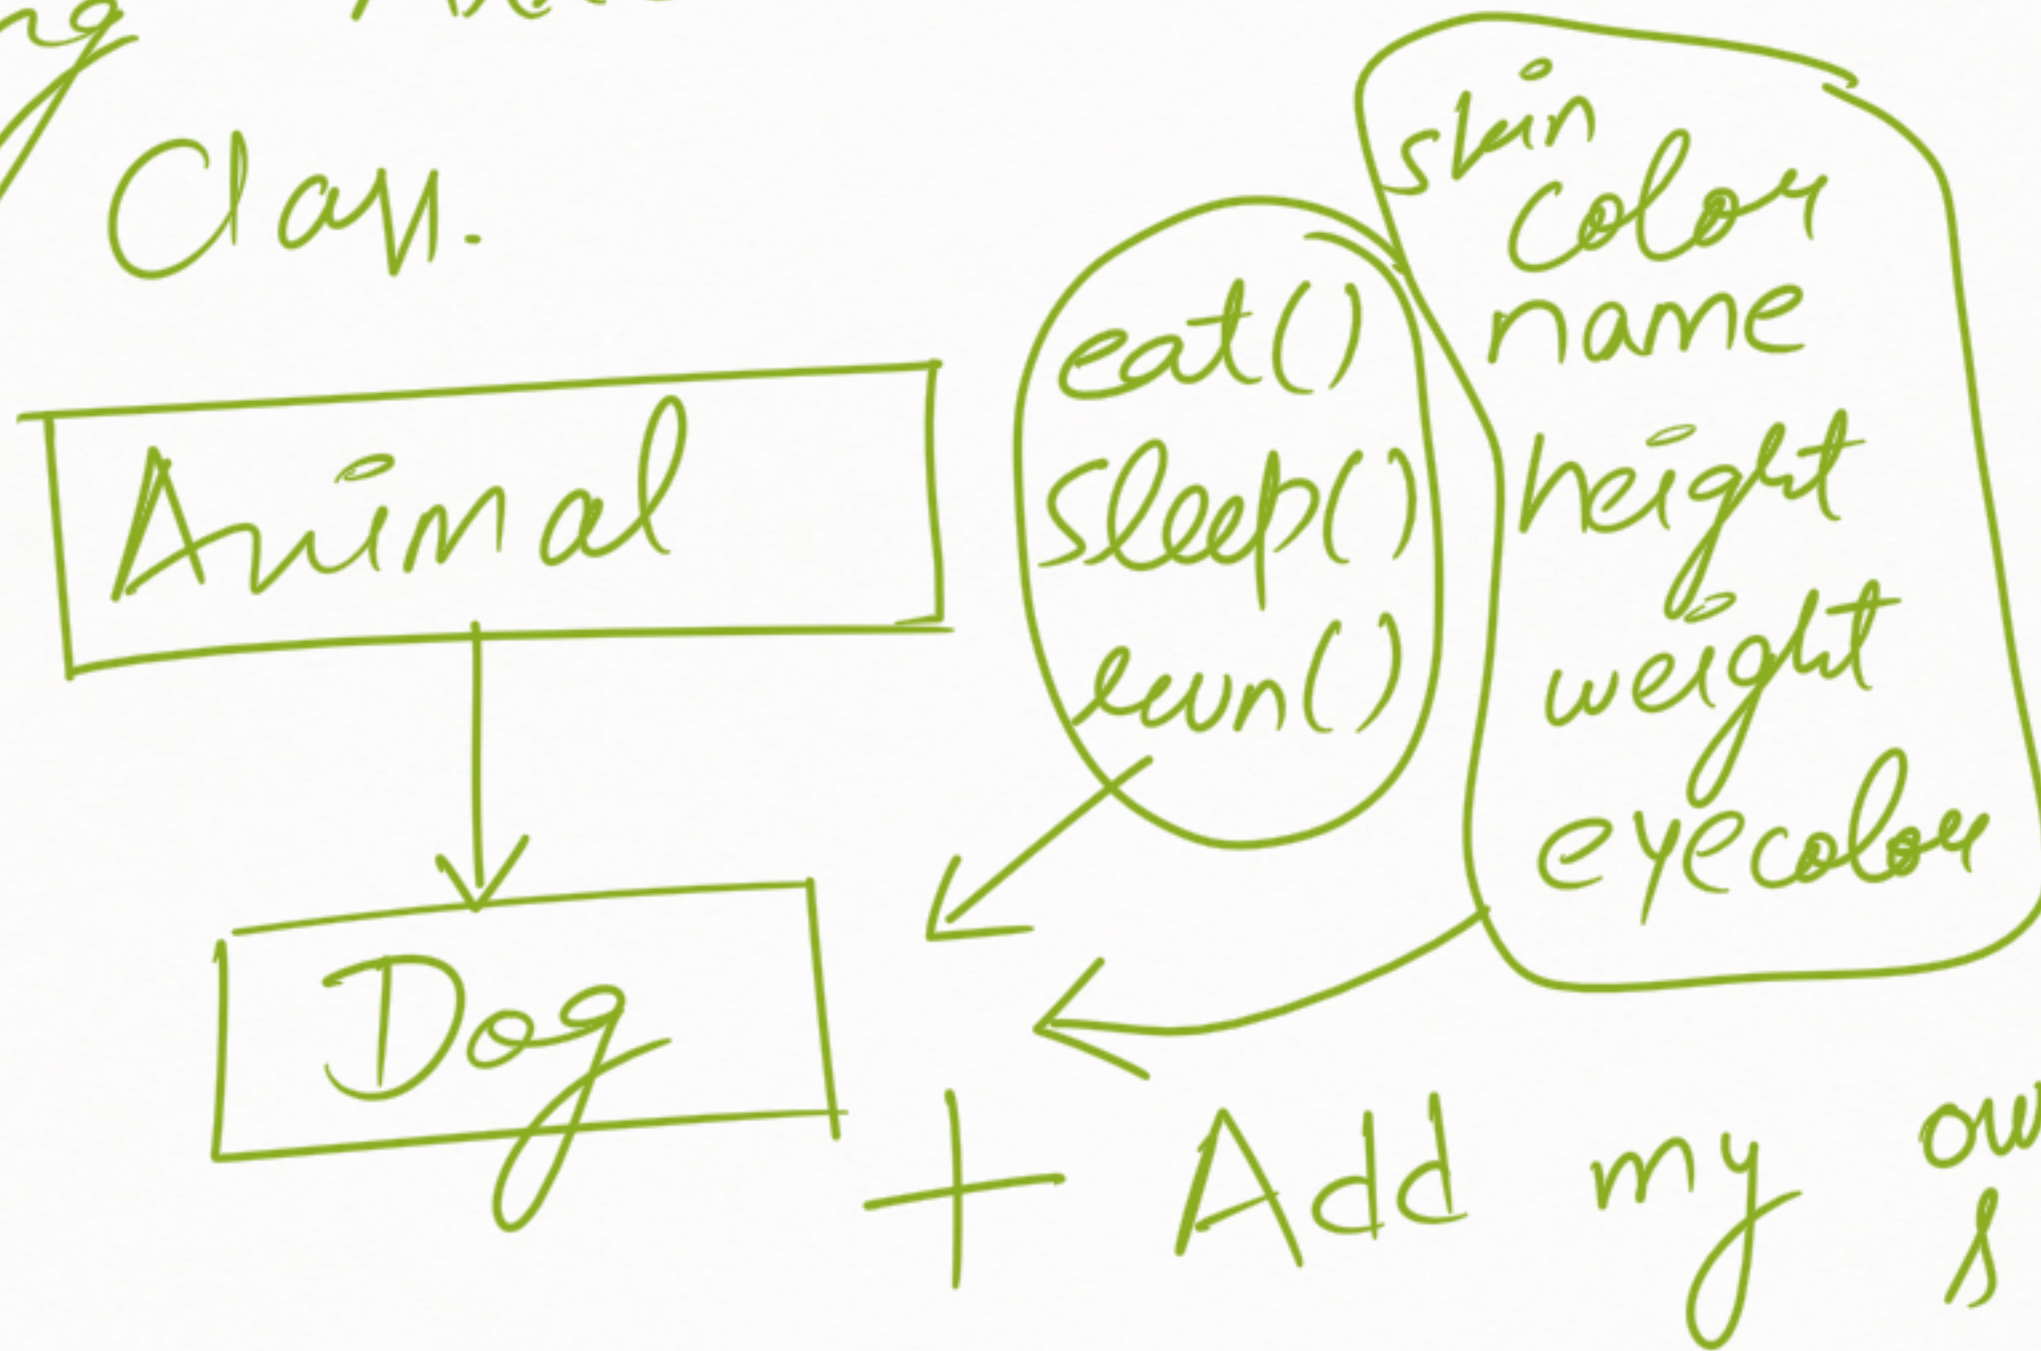 Class.
Animal
eat()
sleep()
run()
skin
color
name
height
weight
eyecolor
Dog
+ Add my